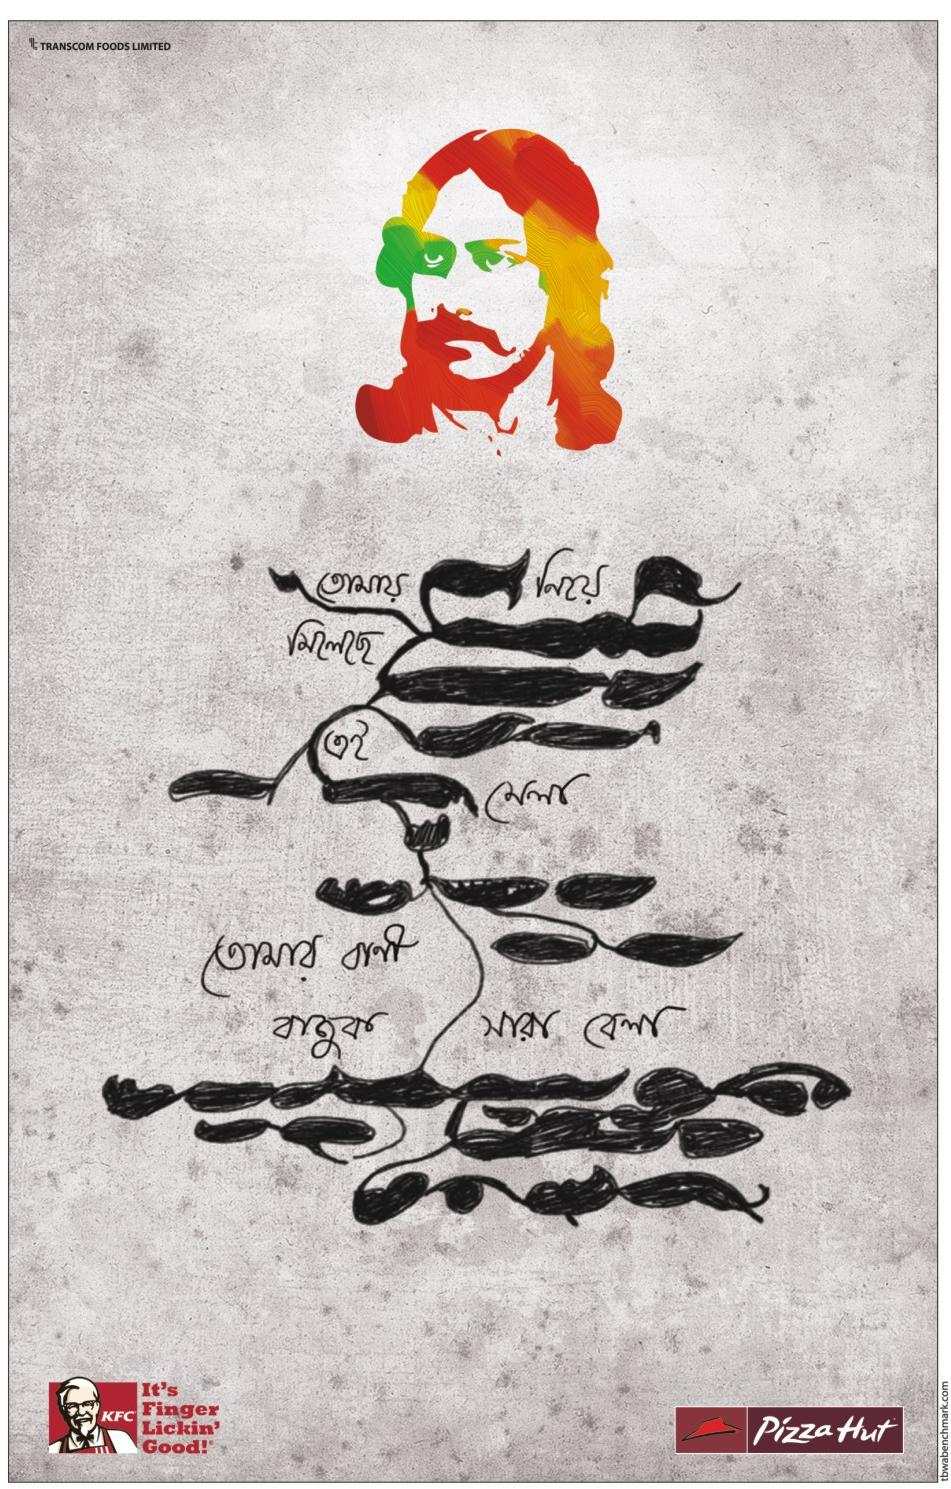 TRANSCOM FOODS LIMITED
তোমায় নিয়ে
মিলেছে
এই
মেলা
তোমার বাণী
বাজুক সারা বেলা
KFC
It's
Finger
Lickin'
Good!
Pizza Hut
tbwabenchmark.com